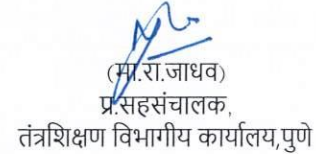 (मा.रा.जाधव)
प्र.सहसंचालक,
तंत्रशिक्षण विभागीय कार्यालय,पुणे